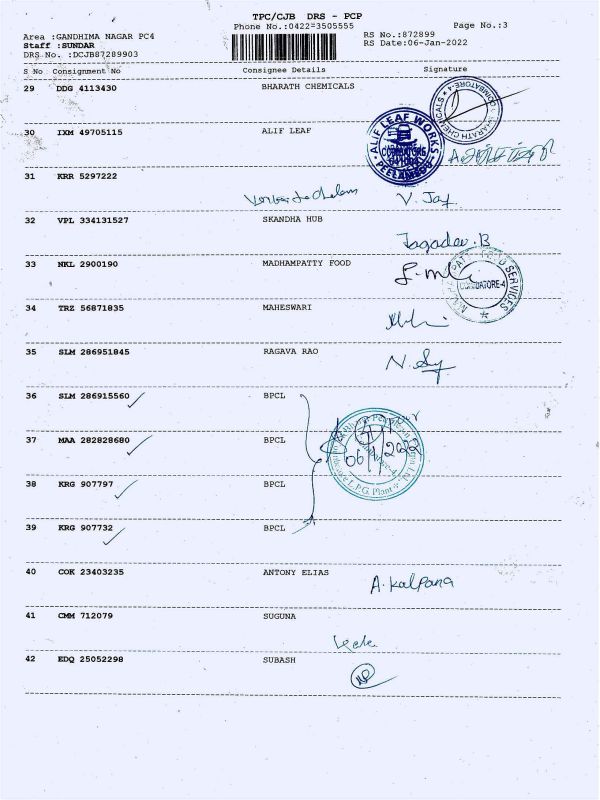 TPC/CJB DRS - PCP
Phone No.:0422=3505555
Page No.:3
Area :GANDHIMA NAGAR PC4
RS No.:872899
Staff :SUNDAR
RS Date:06-Jan-2022
DRS No. :DCJB87289903
S No Consignment No Consignee Details Signature
29 DDG 4113430 BHARATH CHEMICALS
BHARATH CHEMICALS ★ COIMBATORE-4 ★
30 IXM 49705115 ALIF LEAF
ALIF LEAF WORKS
COIMBATORE
PEELAMEDU
31 KRR 5297222
V. Jay
32 VPL 334131527 SKANDHA HUB
Jagadev.B
33 NKL 2900190 MADHAMPATTY FOOD
FOOD SERVICES
COIMBATORE-4
34 TRZ 56871835 MAHESWARI
35 SLM 286951845 RAGAVA RAO
36 SLM 286915560 BPCL
37 MAA 282828680 BPCL
06/1/2022
L.P.G. Plant
38 KRG 907797 BPCL
39 KRG 907732 BPCL
40 COK 23403235 ANTONY ELIAS
A. Kalpana
41 CMM 712079 SUGUNA
42 EDQ 25052298 SUBASH